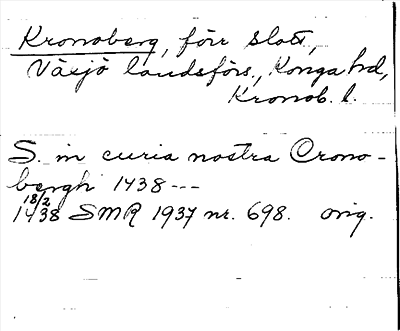 Kronoberg, förr slott,
Växjö landsförs., Konga hd,
Kronob. l.
S. in curia nostra Crono-
bergh 1438 ---
18/2
1438 SMR 1937 nr. 698. orig.